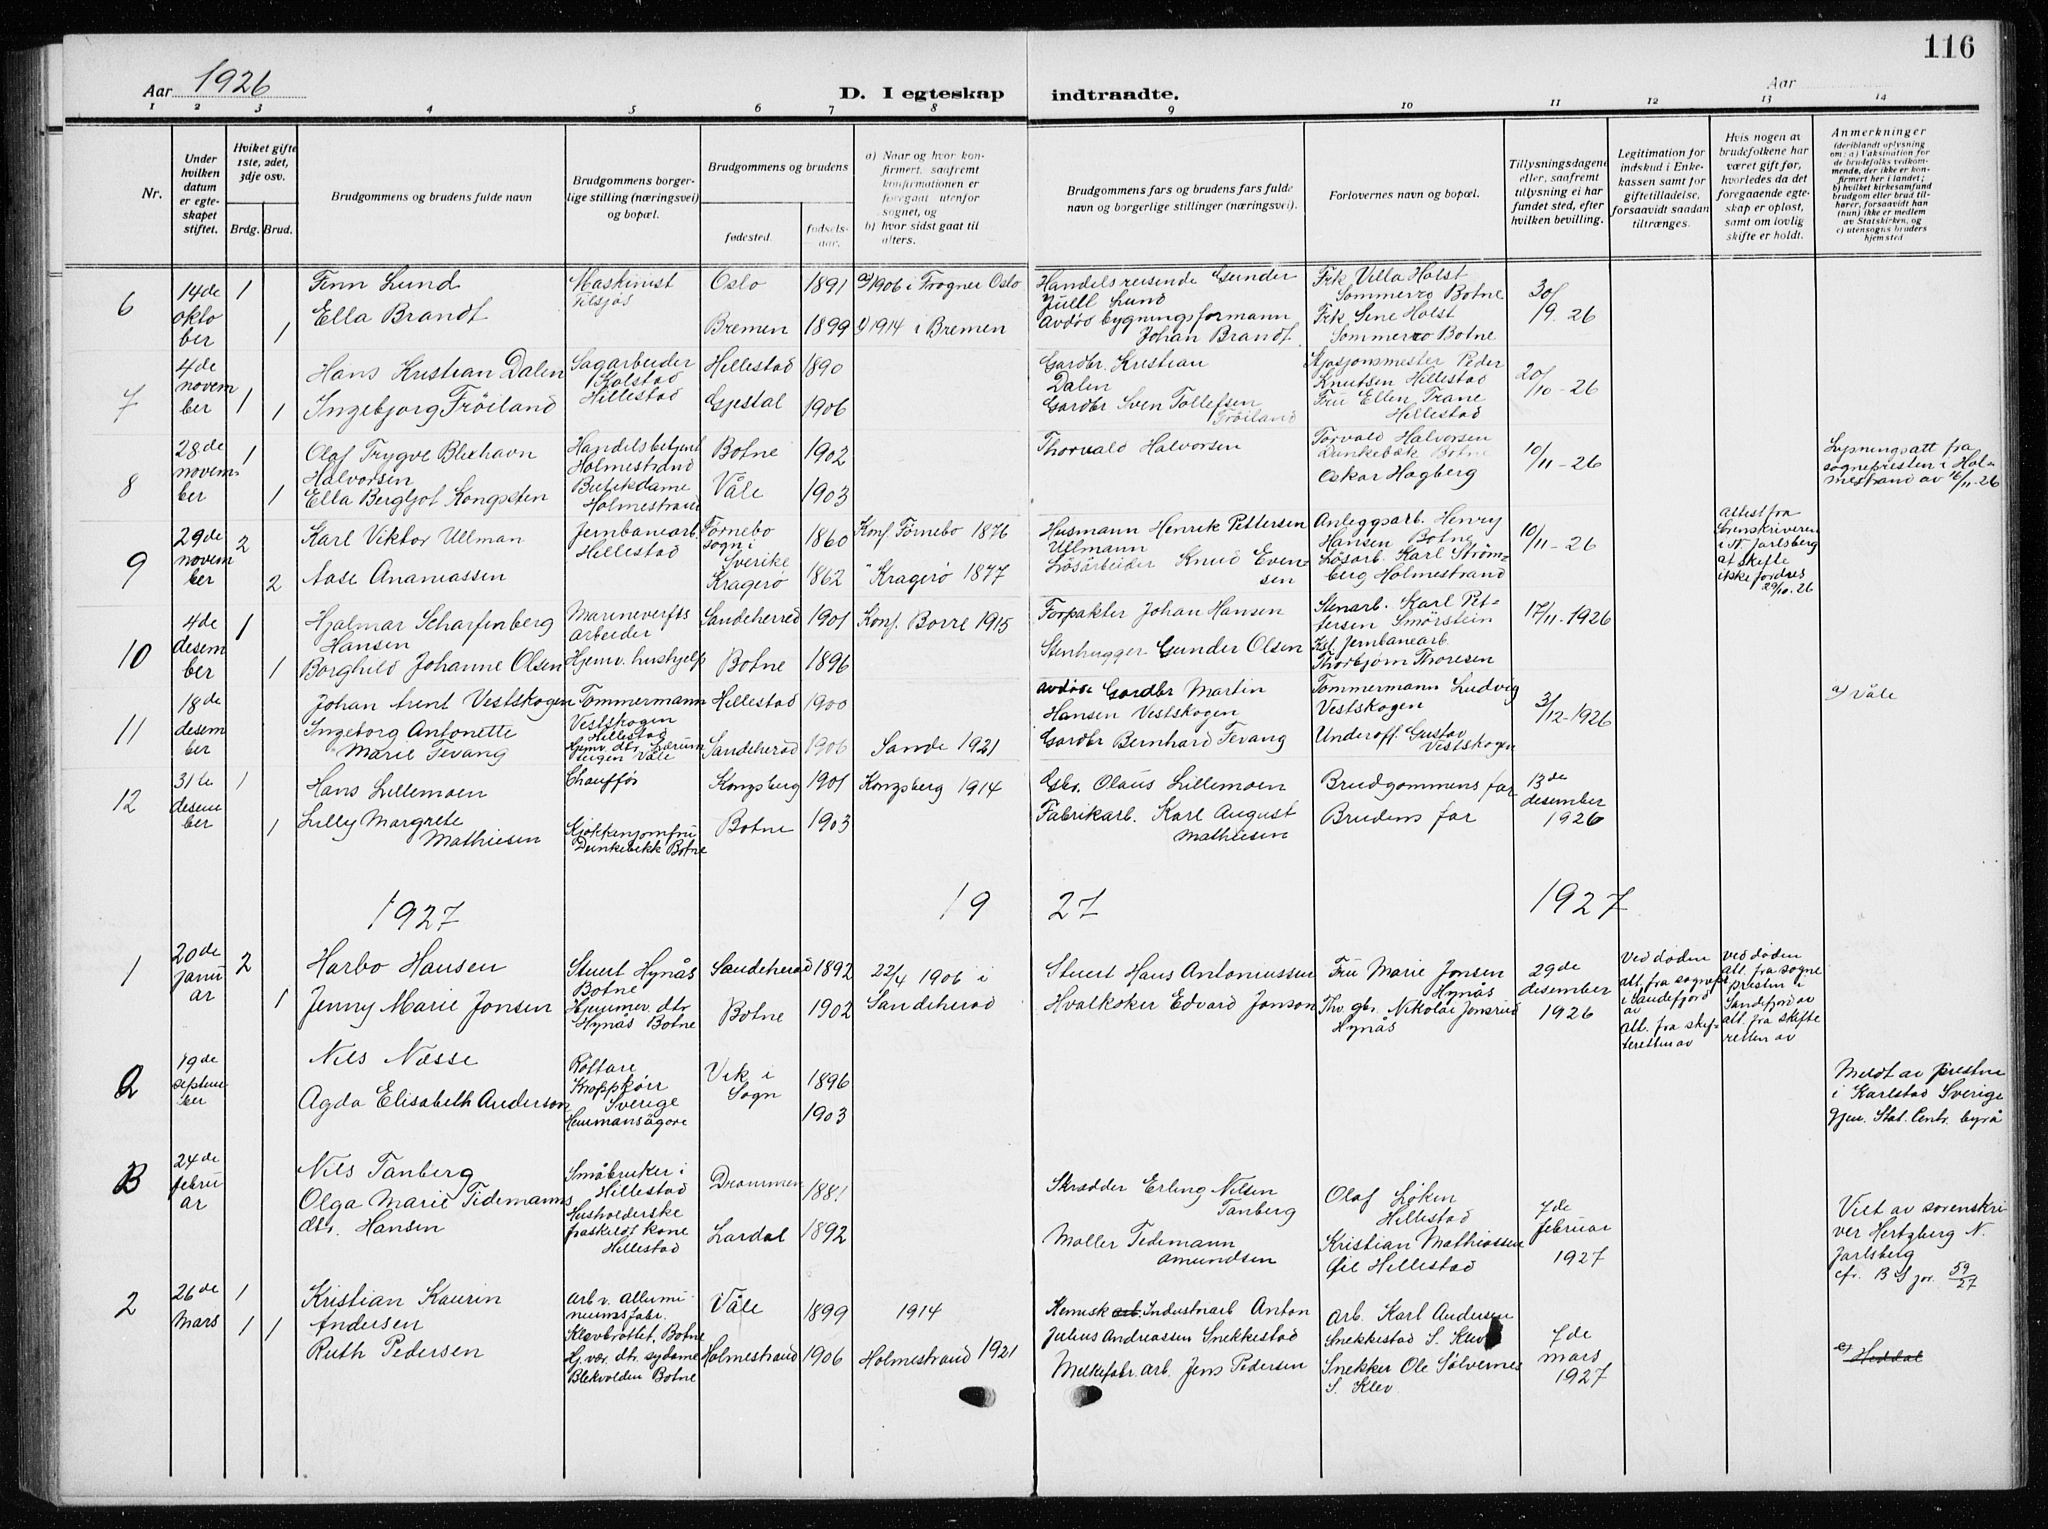 116
Aar 1926
D. I egteskap indtraadte.
Aar
1 2 3 4 5 6 7 8 9 10 11 12 13 14
Nr.
Under hvilken datum er egteskapet stiftet.
Hviket gifte 1ste, 2det, 3dje osv.
Brdg. Brud.
Brudgommens og brudens fulde navn
Brudgommens borgerlige stilling (næringsvei) og bopæl.
Brudgommens og brudens
fødested.
fødselsaar.
a) Naar og hvor konfirmert, saafremt konfirmationen er foregaat utenfor sognet, og
b) hvor sidst gaat til alters.
Brudgommens fars og brudens fars fulde navn og borgerlige stillinger (næringsvei).
Forlovernes navn og bopæl.
Tillysningsdagene eller, saafremt tillysning ei har fundet sted, efter hvilken bevilling.
Legitimation for indskud i Enkekassen samt for giftetilladelse, forsaavidt saadan tiltrænges.
Hvis nogen av brudefolkene har været gift før, hvorledes da det foregaaende egteskap er opløst, samt om lovlig skifte er holdt.
Anmerkninger (deriblandt oplysning om: a) Vaksination for de brudefolks vedkommende, der ikke er konfirmert her i landet; b) hvilket kirkesamfund brudgom eller brud tilhører, forsaavidt han (hun) ikke er medlem av Statskirken, og c) utensogns bruders hjemsted
6
14de oktober
1
Finn Lund
Maskinist
Oslo 1891
a) 1906 i Frogner Oslo
Handelsreisende Gunder
Juell Lund
Frk Villa Holst
Sommerro Botne
30/9. 26
1
Ella Brandt
Bremen 1899
1914 i Bremen
Avdøs bygningsformann
Johan Brandt.
Frk Sene Holst
Sommerro Botne
7
4de november
1
Hans Kristian Dalen
Sagarbeider
Kolstad
Hillestad
Hillestad 1890
Gardbr. Kristian
Dalen
Stasjonsmester Peder
Knutsen Hillestad
20/10 - 26
1
Ingebjorg Frøiland
Gjestal 1906
Gardbr Sven Tollefsen
Frøiland
Fru Ellen Trane
Hillestad
8
28de november
1
Olaf Trygve Blexhavn
Halvorsen
Handelsbetjent
Holmestrand
Botne 1902
Thorvald Halvorsen
Torvald Halvorsen
Dunkebæk Botne
10/11 - 26
Lysningsatt fra
sognepresten i Hol-
mestrand av 16/11-26
1
Ella Bergljot Kongsten
Butikdame
Holmestrand
Våle 1903
Oskar Hagberg
9
29de november
2
Karl Viktor Ullman
Jernbanearb.
Hillestad
Førnebo
sogn i
Sverike
1860
Konf. Førnebo 1876
Husmann Henrik Pettersen
Ullmann
Anleggsarb. Henry
Hansen Botne
10/11 - 26
Attest fra
Sorenskriveren
i N. Jarlsberg
at skifte
ikke fordres
29/10. 26
2
Aase Ananiassen
Kragerø 1862
" Kragerø 1877
Løsarbeider Knud Even-
sen
Løsarb. Karl Strøm-
berg Holmestrand
10
4de desember
1
Hjalmar Scharfenberg
Hansen
Marineverfts
arbeider
Sandeherred 1901
Konf. Borre 1915
Forpakter Johan Hansen
Stenarb. Karl Pet-
tersen Smørstein
17/11 - 1926
1
Borghild Johanne Olsen
Hjemv. hushjelp
Botne 1896
Stenhugger Gunder Olsen
Jernbanearb.
Thorbjørn Thoresen
11
18de desember
Johan Arent Vestskogen
Tømmermann
Vestskogen
Hillestad
Hillestad 1900
avdøde Gardbr Martin
Hansen Vestskogen
Tømmermann Ludvig
Vestskogen
3/12 - 1926
a) Våle
Ingeborg Antonette
Marie Tevang
Hjemv. dtr.
Våle
Sandeherad 1906
Sande 1921
Gardbr Bernhard Tevang
Underoff. Gustav
Vestskogen
12
31te desember
1
Hans Lillemoen
Chauffør
Kongsberg 1901
Kongsberg 1914
Gbr. Olaus Lillemoen
Brudgommens far
13de desember 1926
1
Lilly Margrete
Mathiesen
Kjøkkenjomfru
Dunkebekk Botne
Botne 1903
Fabrikarb. Karl August
Mathiesen
Brudens far
1927 19 27 1927
1
20de januar
2
Harbo Hansen
Stuert Hynås
Botne
Sandeherad 1892
22/4 1906 i
Sandeherad
Stuert Hans Antoniussen
Fru Marie Jonsen
Hynås
29de desember 1926
Ved døden
att. fra sogneprest
i Sandefjord
av
att. fra skif-
teretten av
ved døden
att. fra sogne
presten i
Sandefjord av
att. fra skifte
retten av
1
Jenny Marie Jonsen
Hjemmev. dtr
Hynås Botne
Botne 1902
Hvalkoker Edvard Jonson
Thv. gbr. Nikolai Jonsrud
Hynås
2
19de september
Nils Næsse
Rottare
Kroppkärr
Sverige
Vik i
Sogn
1896
Meldt av presten
i Karlstad Sverige
gjen. Stat. Centr. byrå
Agda Elisabeth Anderson
Hemmansägare
1903
B
24de februar
Nils Tanberg
Småbruker i
Hillestad
Drammen 1881
Skrædder Erling Nilsen
Tanberg
Olaf Løken
Hillestad
7de februar 1927
Viet av sorenskri-
ver Hertzberg N.
Jarlsberg
cfr. B S jor. 59/27
Olga Marie Tidemanns
dtr. Hansen
Husholderske
fraskildt kone
Hillestad
Lardal 1892
Møller Tidemann
Amundsen
Kristian Mathiassen
Øil Hillestad
2
26de Mars
1
Kristian Kaurin
Andersen
arb v. allumi-
niumsfabr.
Klevbrottet, Botne
Våle 1899
1914
Kemisk arb. Industriarb Anton
Julius Andreassen Snekkestad
Arb. Karl Andersen
Snekkestad S. Klev
7de mars 1927
1 1
Ruth Pedersen
Hj. vær. dtr. sydame
Blekvolden Botne
Holmestrand 1906
Holmestrand 1921
Melkefabr. arb. Jens Pedersen
Snekker Ole Sølvernes
S. Klev
Heddal